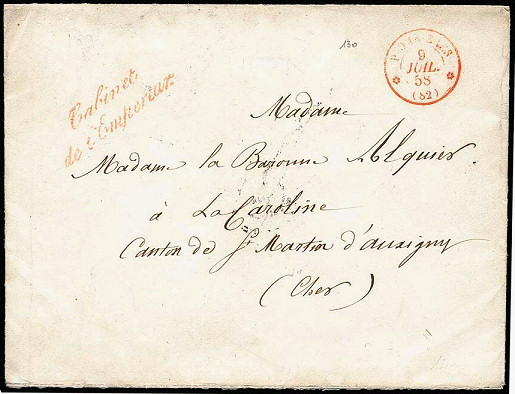 130
9
JUIL.
58
(82)
Cabinet
de l'Empereur
Madame
Madame la Baronne Alquier.
à La Caroline
Canton de St Martin d'auxigny
(Cher)